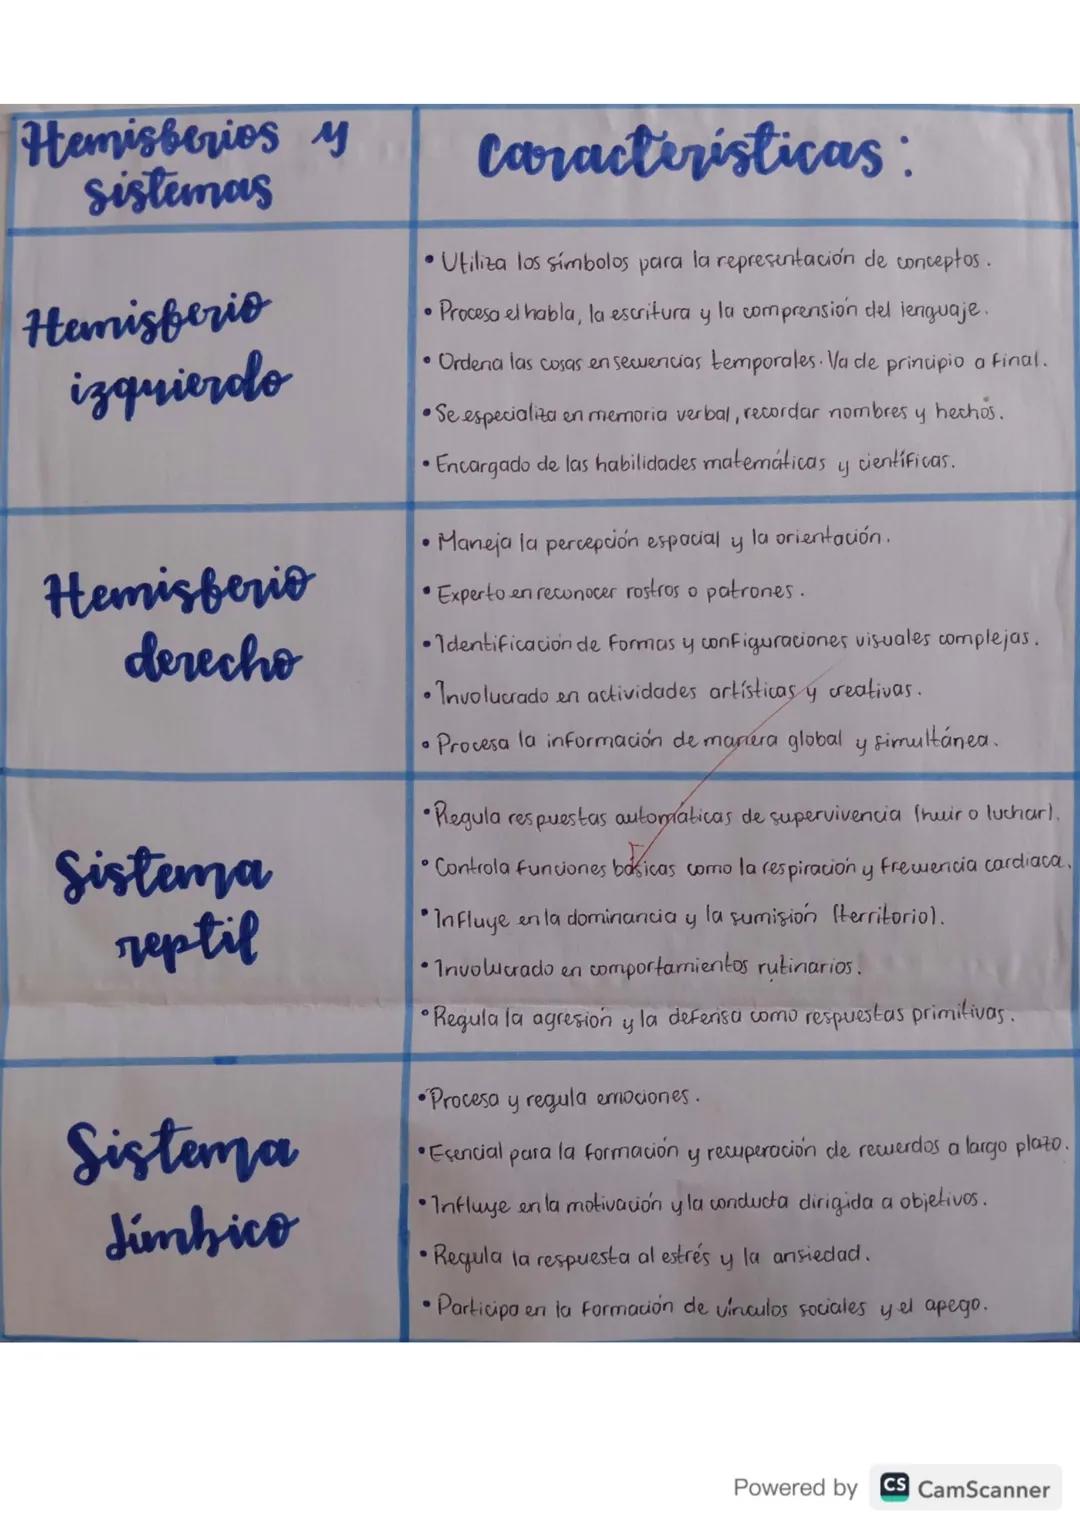 Hemisferios y
sistemas
Características:
Hemisferio
izquierdo
• Utiliza los símbolos para la representación de conceptos.
• Procesa el habla, la escritura y la comprensión del lenguaje.
• Ordena las cosas en secuencias temporales. Va de principio a final.
• Se especializa en memoria verbal, recordar nombres y hechos.
• Encargado de las habilidades matemáticas y científicas.
Hemisferio
derecho
• Maneja la percepción espacial y la orientación.
• Experto en reconocer rostros o patrones.
• Identificación de formas y configuraciones visuales complejas.
• Involucrado en actividades artísticas y creativas.
• Procesa la información de manera global y simultánea.
Sistema
reptil
• Regula respuestas automáticas de supervivencia (huir o luchar).
• Controla funciones básicas como la respiración y frecuencia cardiaca.
• Influye en la dominancia y la sumisión (territorio).
• Involucrado en comportamientos rutinarios.
• Regula la agresión y la defensa como respuestas primitivas.
Sistema
Límbico
• Procesa y regula emociones.
• Esencial para la formación y recuperación de recuerdos a largo plazo.
• Influye en la motivación y la conducta dirigida a objetivos.
• Regula la respuesta al estrés y la ansiedad.
• Participa en la formación de vínculos sociales y el apego.
Powered by CS CamScanner